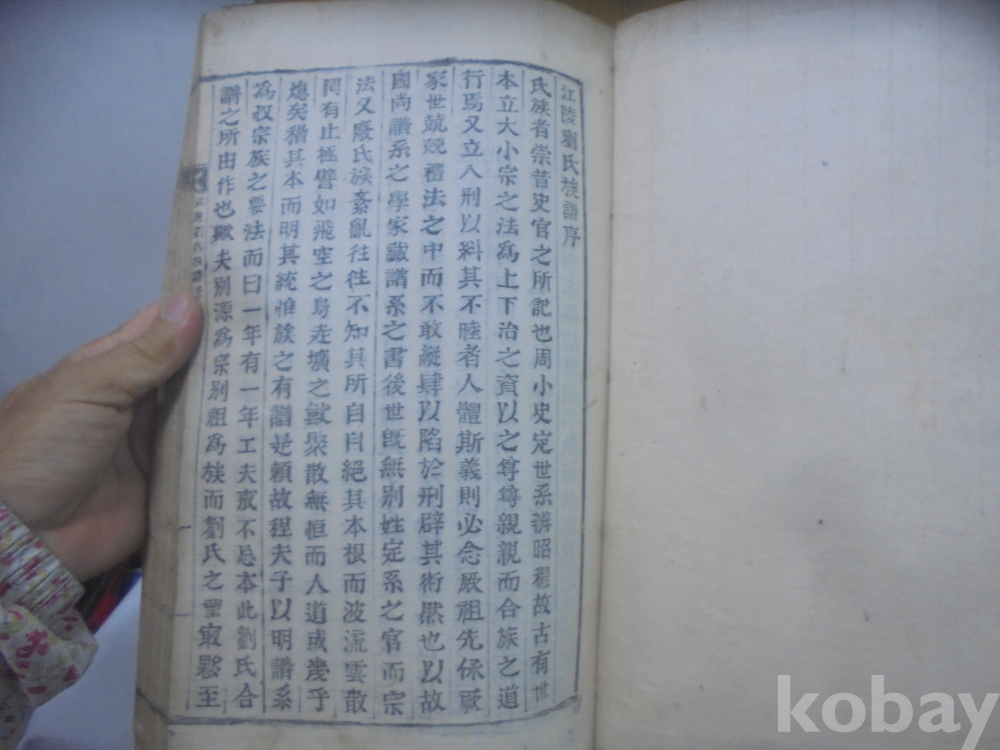 江陵劉氏族譜序
氏族者崇昔史官之所記也周小史定世系辨昭穆故古有世
本立大小宗之法為上下治之資以之尊尊親親而合族之道
行焉又立八刑以糾其不睦者人體斯義則必念厥祖先保
家世兢兢禮法之中而不敢縱肆以陷於刑辟其術然也以故
國尚譜系之學家藏譜系之書後世旣無別姓定系之官而宗
法又廢氏族紊亂往往不知其所自自絕其本根而波流雲散
罔有止極譬如飛空之鳥走壙之獸聚散無恒而人道或幾乎
熄矣稽其本而明其統惟族之有譜是賴故程夫子以明譜系
為收宗族之要法而曰一年有一年工夫戒不忘本此劉氏合
譜之所由作也歟夫別源為宗別祖為族而劉氏之望最夥至
kobay